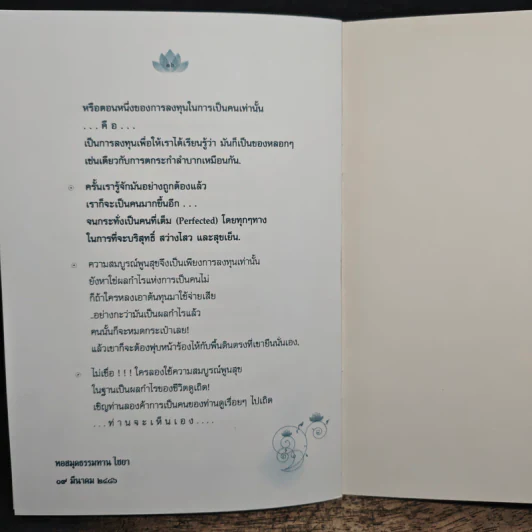 หรือตอนหนึ่งของการลงทุนในการเป็นคนเท่านั้น
...คือ...
เป็นการลงทุนเพื่อให้เราได้เรียนรู้ว่า มันก็เป็นของหลอกๆ
เช่นเดียวกับการตกระกำลำบากเหมือนกัน.
ครั้นเรารู้จักมันอย่างถูกต้องแล้ว
เราก็จะเป็นคนมากขึ้นอีก ...
จนกระทั่งเป็นคนที่เต็ม (Perfected) โดยทุกๆทาง
ในการที่จะบริสุทธิ์ สว่างไสว และสุขเย็น.
ความสมบูรณ์พูนสุขจึงเป็นเพียงการลงทุนเท่านั้น
ยังหาใช่ผลกำไรแห่งการเป็นคนไม่
ก็ถ้าใครหลงเอาต้นทุนมาใช้จ่ายเสีย
.อย่างกะว่ามันเป็นผลกำไรแล้ว
คนนั้นก็จะหมดกระเป๋าเลย!
แล้วเขาก็จะต้องฟุบหน้าร้องไห้กับพื้นดินตรงที่เขายืนนั่นเอง.
ไม่เชื่อ ! ! ! ใครลองใช้ความสมบูรณ์พูนสุข
ในฐานเป็นผลกำไรของชีวิตดูเถิด!
เชิญท่านลองค้าการเป็นคนของท่านดูเรื่อยๆ ไปเถิด
...ท่านจะเห็นเอง....
หอสมุดธรรมทาน ไชยา
๑๙ มีนาคม ๒๔๘๖